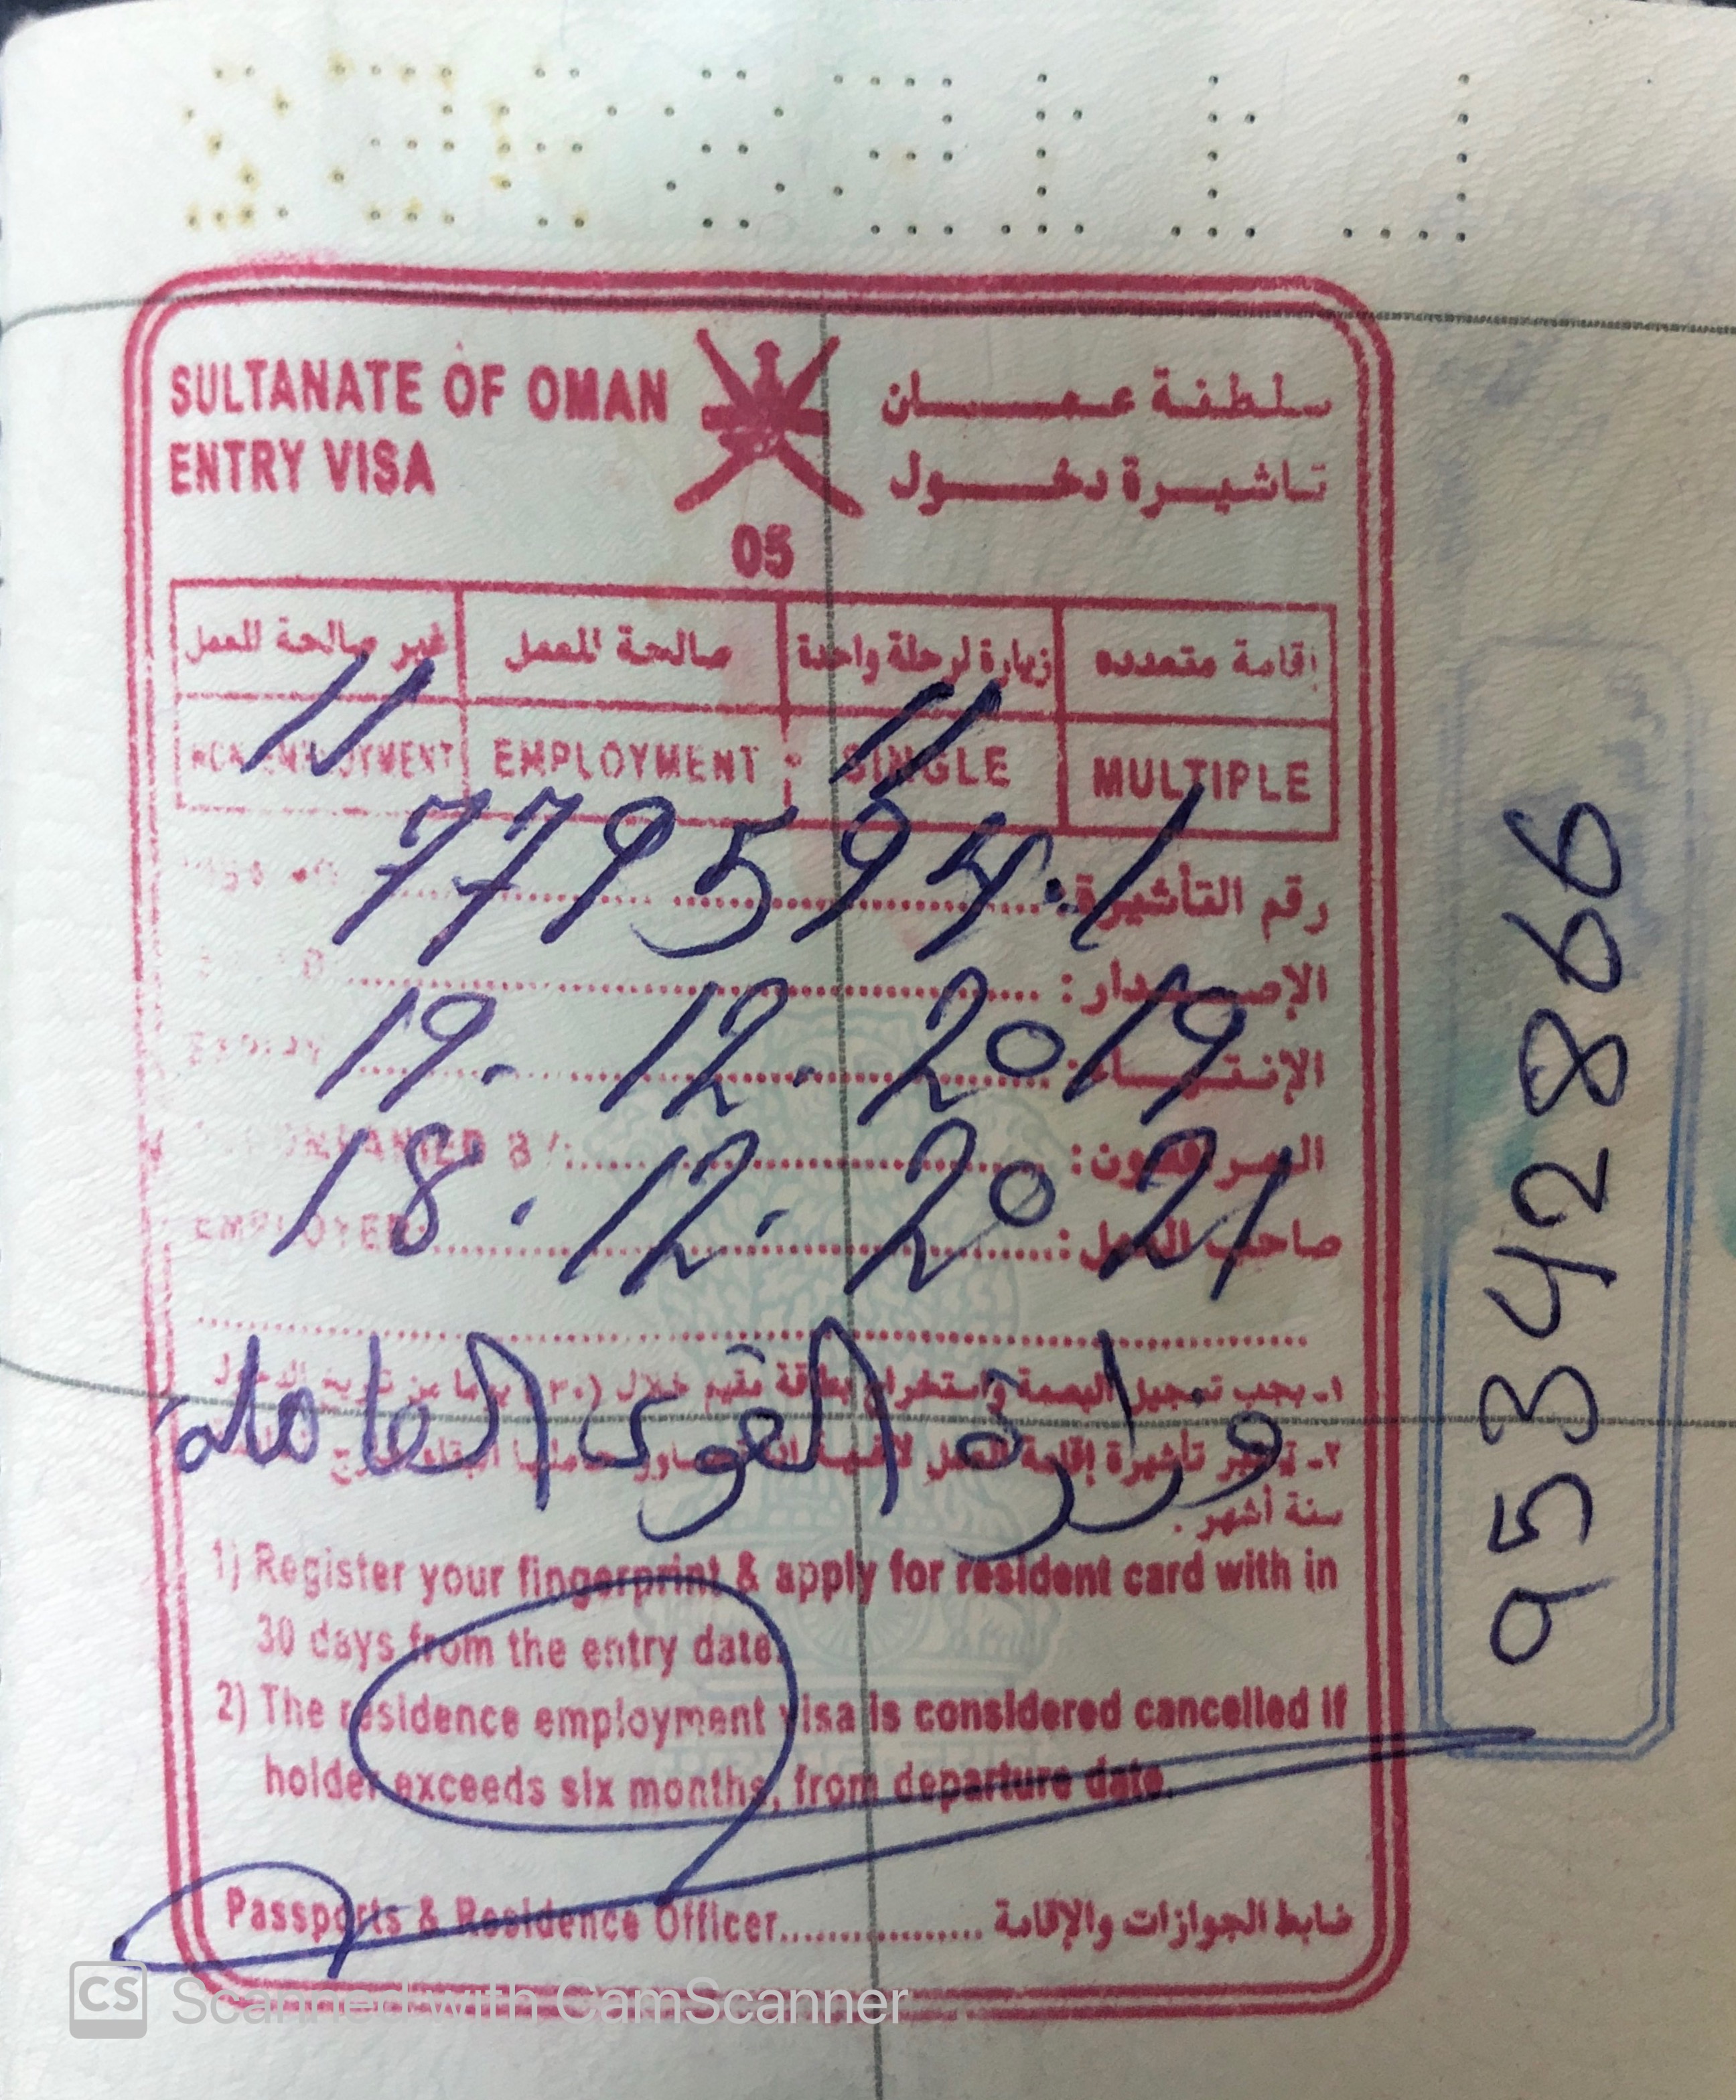 SULTANATE OF OMAN
سلطنة عمان
ENTRY VISA
تاشيرة دخول
05
غير صالحة للعمل
صالحة للعمل
زيارة لرحلة واحدة
إقامة متعدده
NON EMPLOYMENT
EMPLOYMENT
SINGLE
MULTIPLE
رقم التأشيرة:
الإصدار:
19. 12. 2019
الإنتهاء:
المرافقون:
18. 12. 2021
EMPLOYER:
صاحب العمل:
وزارة القوى العاملة
١ـ يجب تسجيل البصمة واستخراج بطاقة مقيم خلال (٣٠) يوما من تاريخ الدخول
٢ـ تعتبر تأشيرة إقامة العمل لاغية
ستة أشهر .
1) Register your fingerprint & apply for resident card with in
30 days from the entry date.
2) The residence employment visa is considered cancelled if
holder exceeds six months, from departure date.
Passports & Residence Officer.................. ضابط الجوازات والإقامة
95342866
CS Scanned with CamScanner